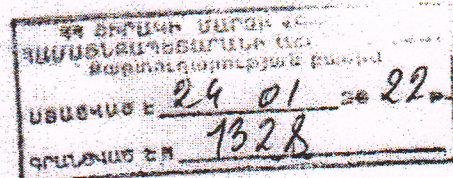 ՀՀ ՇԻՐԱԿԻ ՄԱՐԶԻ
ՀԱՄԱՅՆՔԱՊԵՏԱՐԱՆԻ
Քաղտնուղարության բաժին
ՍՏԱՑՎԱԾ Է 24 01 20 22թ.
ԳՐԱՆՑՎԱԾ Է N 1328